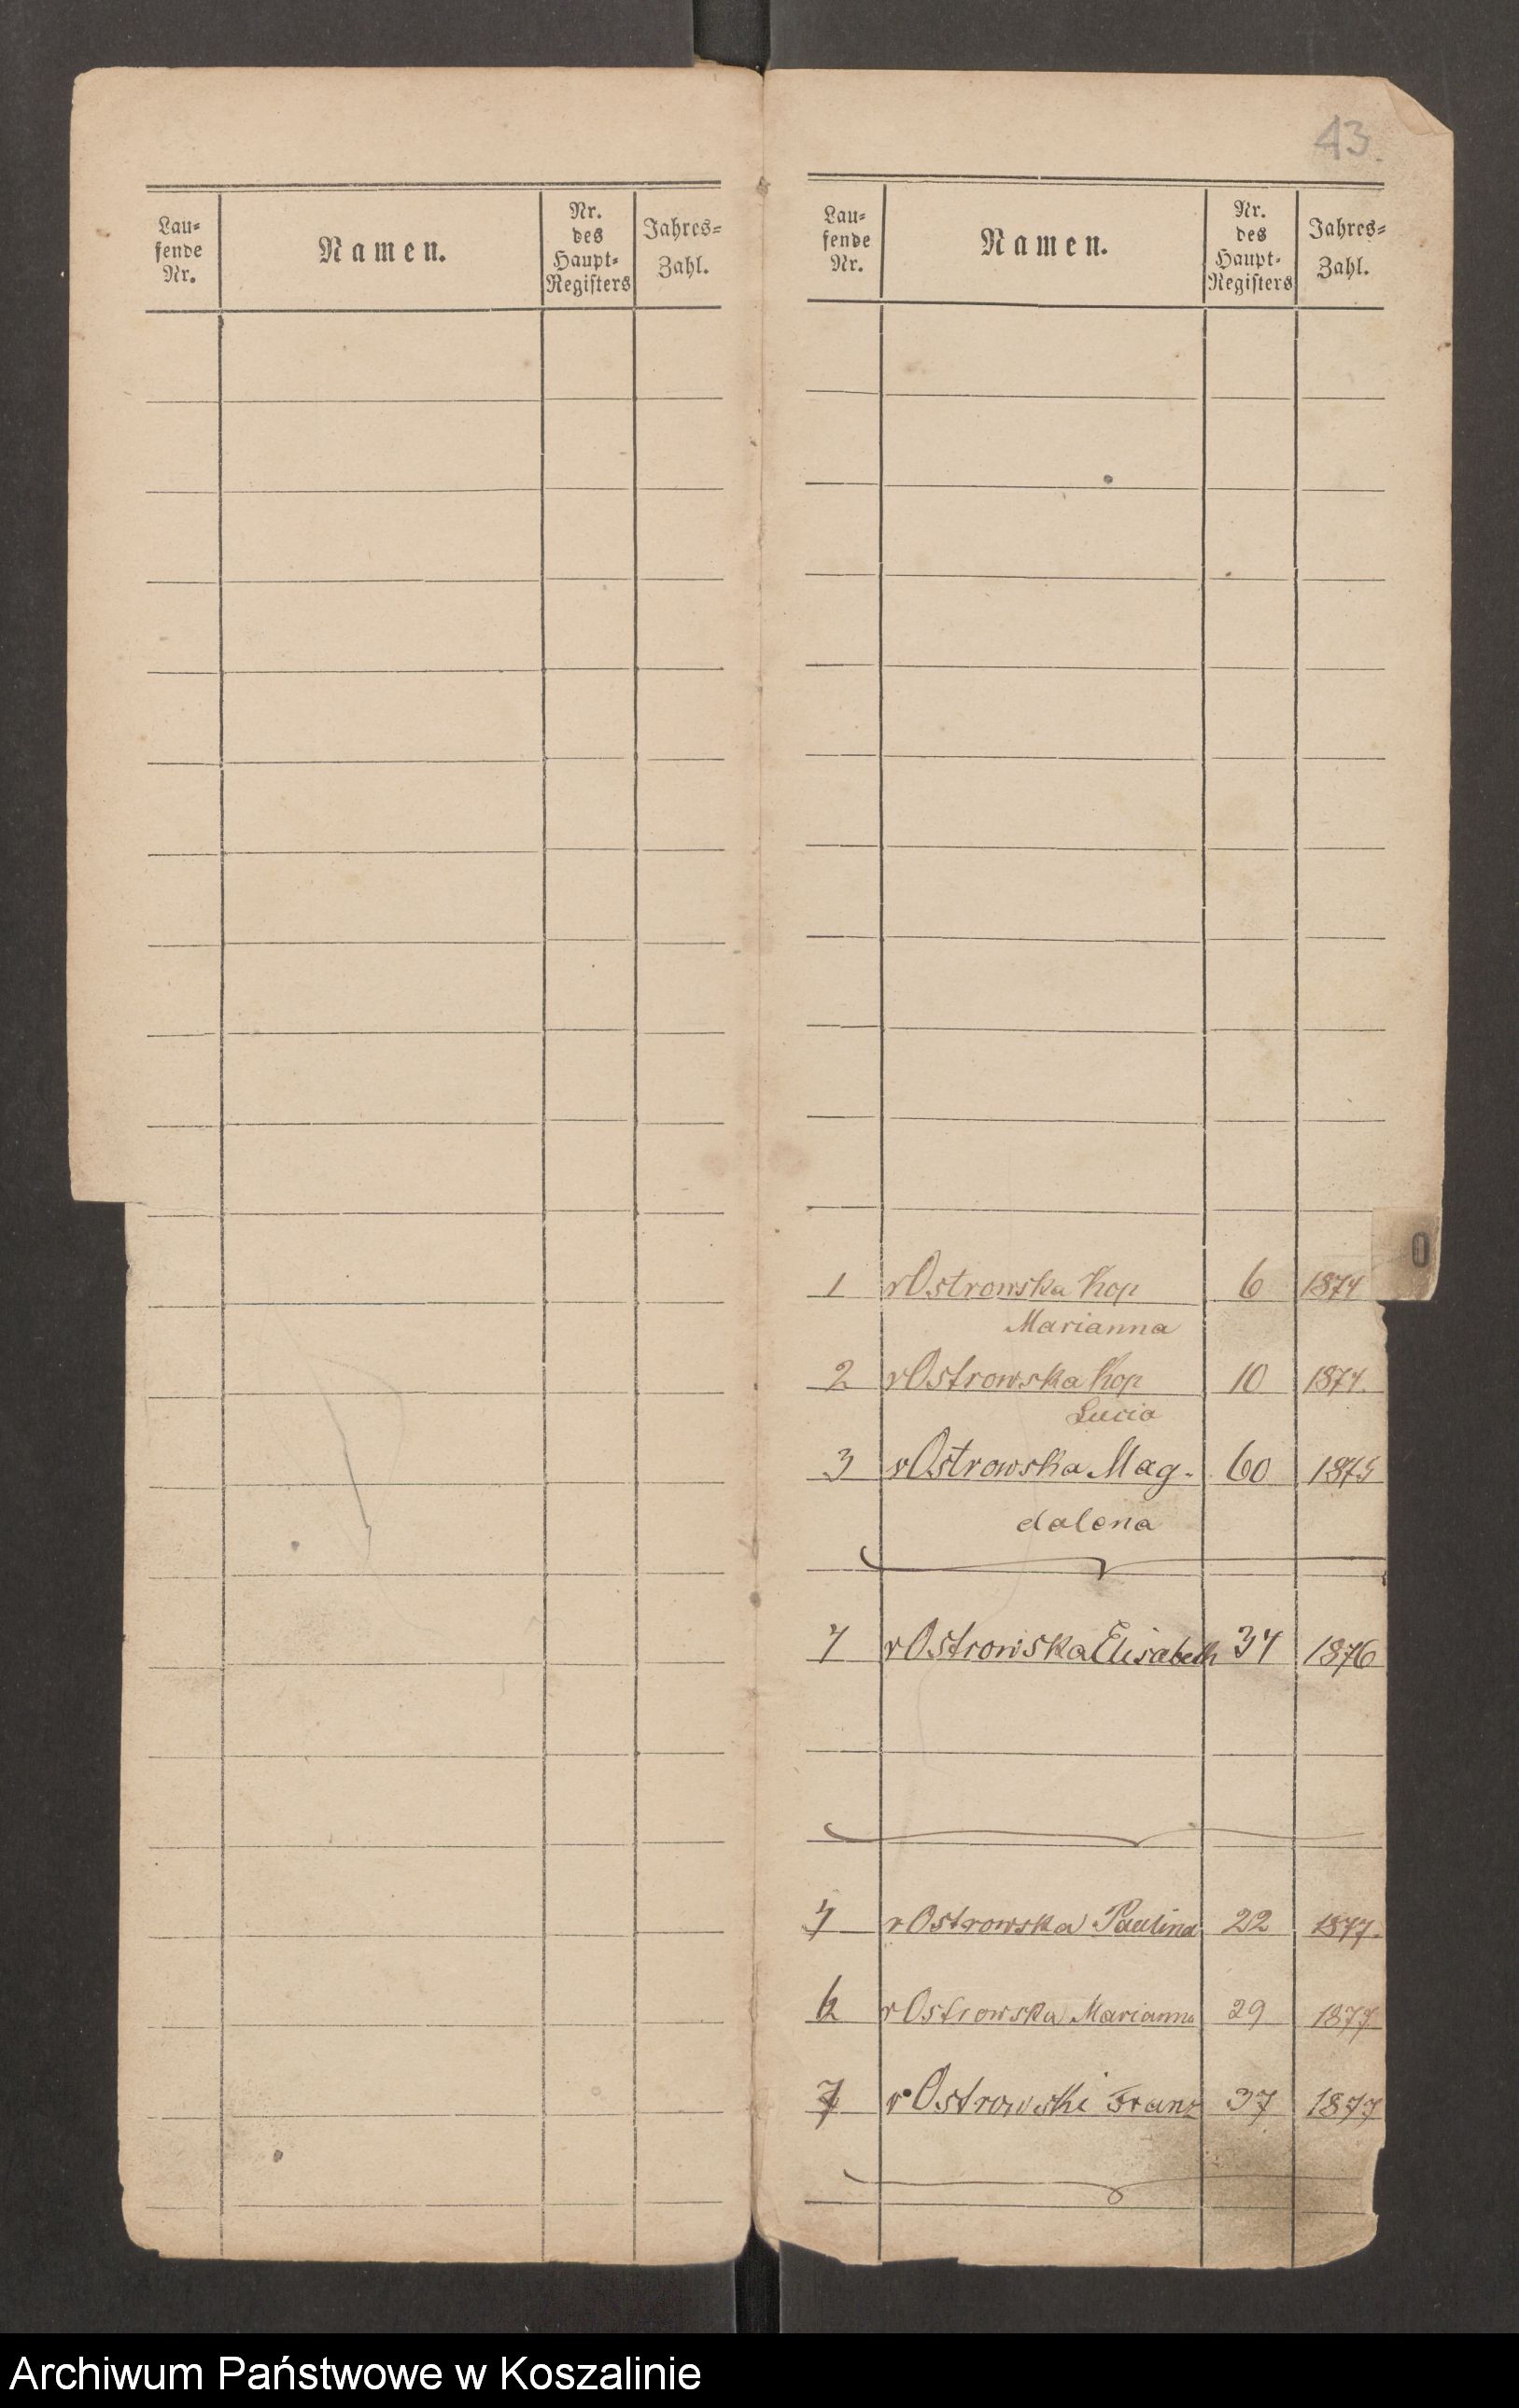 43.
Lau=
fende
Nr.
Namen.
Nr.
des
Haupt=
Registers
Jahres=
Zahl.
Lau=
fende
Nr.
Namen.
Nr.
des
Haupt=
Registers
Jahres=
Zahl.
O
1 v Ostrowska Kop 6 1874
Marianna
2 v Ostrowska Kop 10 1874.
Lucia
3 v Ostrowska Mag- 60 1875
dalena
4 v Ostrowska Elisabeth 34 1876
v Ostrowska Paulina 22 1877.
v Ostrowska Marianna 29 1877
7 v Ostrowski Franz 37 1877
Archiwum Państwowe w Koszalinie